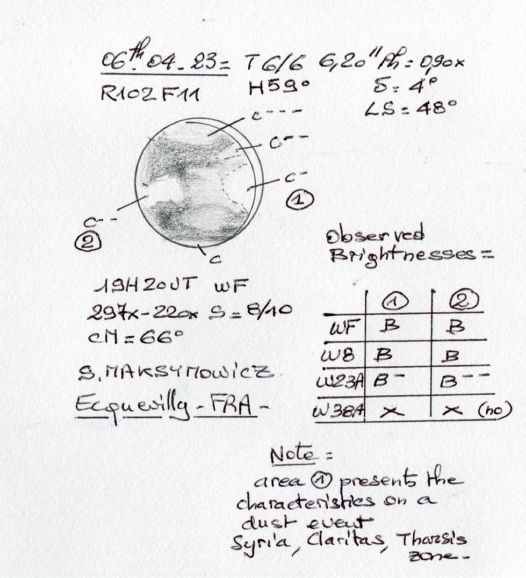 06th.04-23= T6/6 6,20" Ph=0,90x
R102F11 H59° δ=4°
LS=48°
c---
c--
c-
①
c--
②
c
19H20UT WF
297x-220x S=8/10
CM=66°
S.MAKSYMOWICZ
Ecquevilly-FRA-
Observed
Brightnesses=
① ②
WF B B
W8 B B
W23A B- B--
W38A x x (no)
Note=
area ① presents the
characteristics on a
dust event
Syria, Claritas, Tharsis
zone-